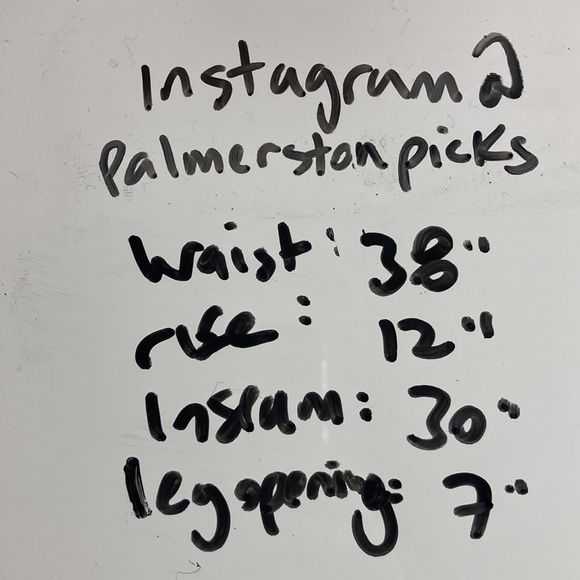 Instagram @
Palmerstonpicks
Waist: 38"
rise: 12"
Inseam: 30"
leg opening: 7"